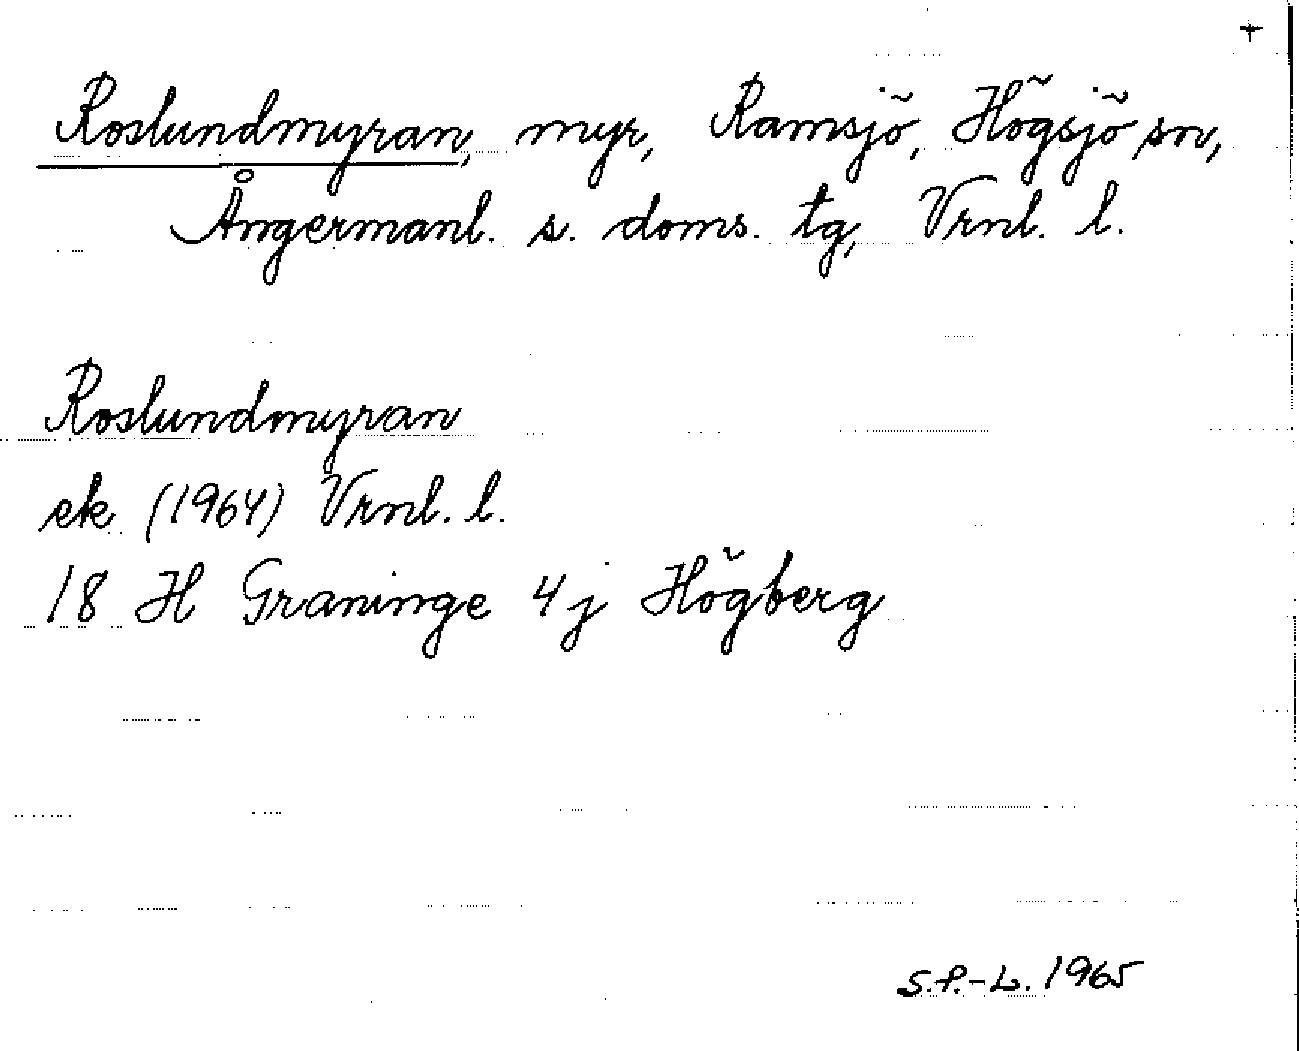 +
Roslundmyran, myr, Ramsjö, Högsjö sn,
Ångermanl. s. doms. tg, Vrnl. l.
Roslundmyran
ek (1964) Vrnl. l.
18 H Graninge 4 j Högberg
S.P.-L. 1965